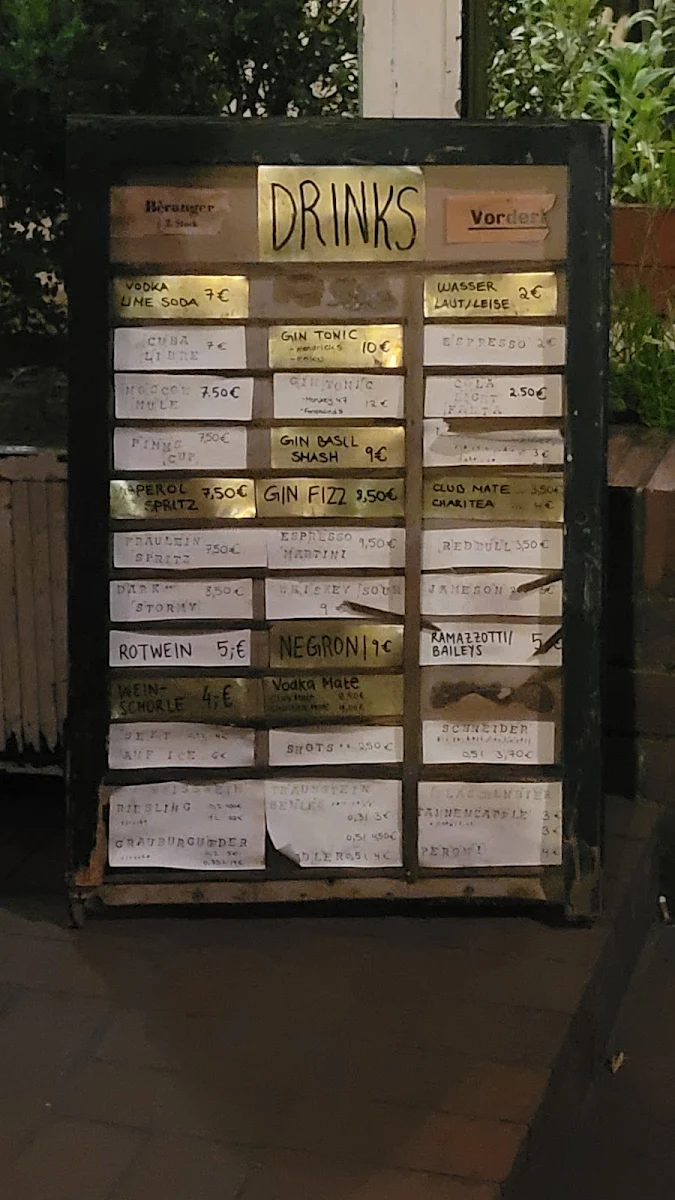 DRINKS
Béranger
Vorder
VODKA
LIME SODA 7€
CUBA
LIBRE 7€
MOSCOW
MULE 7.50€
PIMMS
CUP 7,50€
APEROL
SPRITZ 7,50€
FRÄULEIN
SPRITZ 7,50€
DARK
STORMY 8,50€
ROTWEIN 5,-€
WEIN-
SCHORLE 4,-€
SEKT
AUF ICE 6€
RIESLING
GRAUBURGUNDER
GIN TONIC
- Hendricks 10€
GIN TONIC
- Monkey 47 12€
GIN BASIL
SMASH 9€
GIN FIZZ 8,50€
ESPRESSO
MARTINI 9,50€
WHISKEY SOUR
9
NEGRONI 9€
Vodka Mate
SHOTS 2,50€
0,3l 3€
0,5l 4,50€
0,5l 4€
WASSER
LAUT/LEISE 2€
ESPRESSO 2€
COLA
LIGHT
FANTA 2.50€
3€
CLUB MATE 3,50€
CHARITEA 4€
RED BULL 3,50€
JAMESON
RAMAZZOTTI/
BAILEYS 5
SCHNEIDER
0,5l 3,70€
TANNENZÄPFLE 3€
3€
PERONI 4€